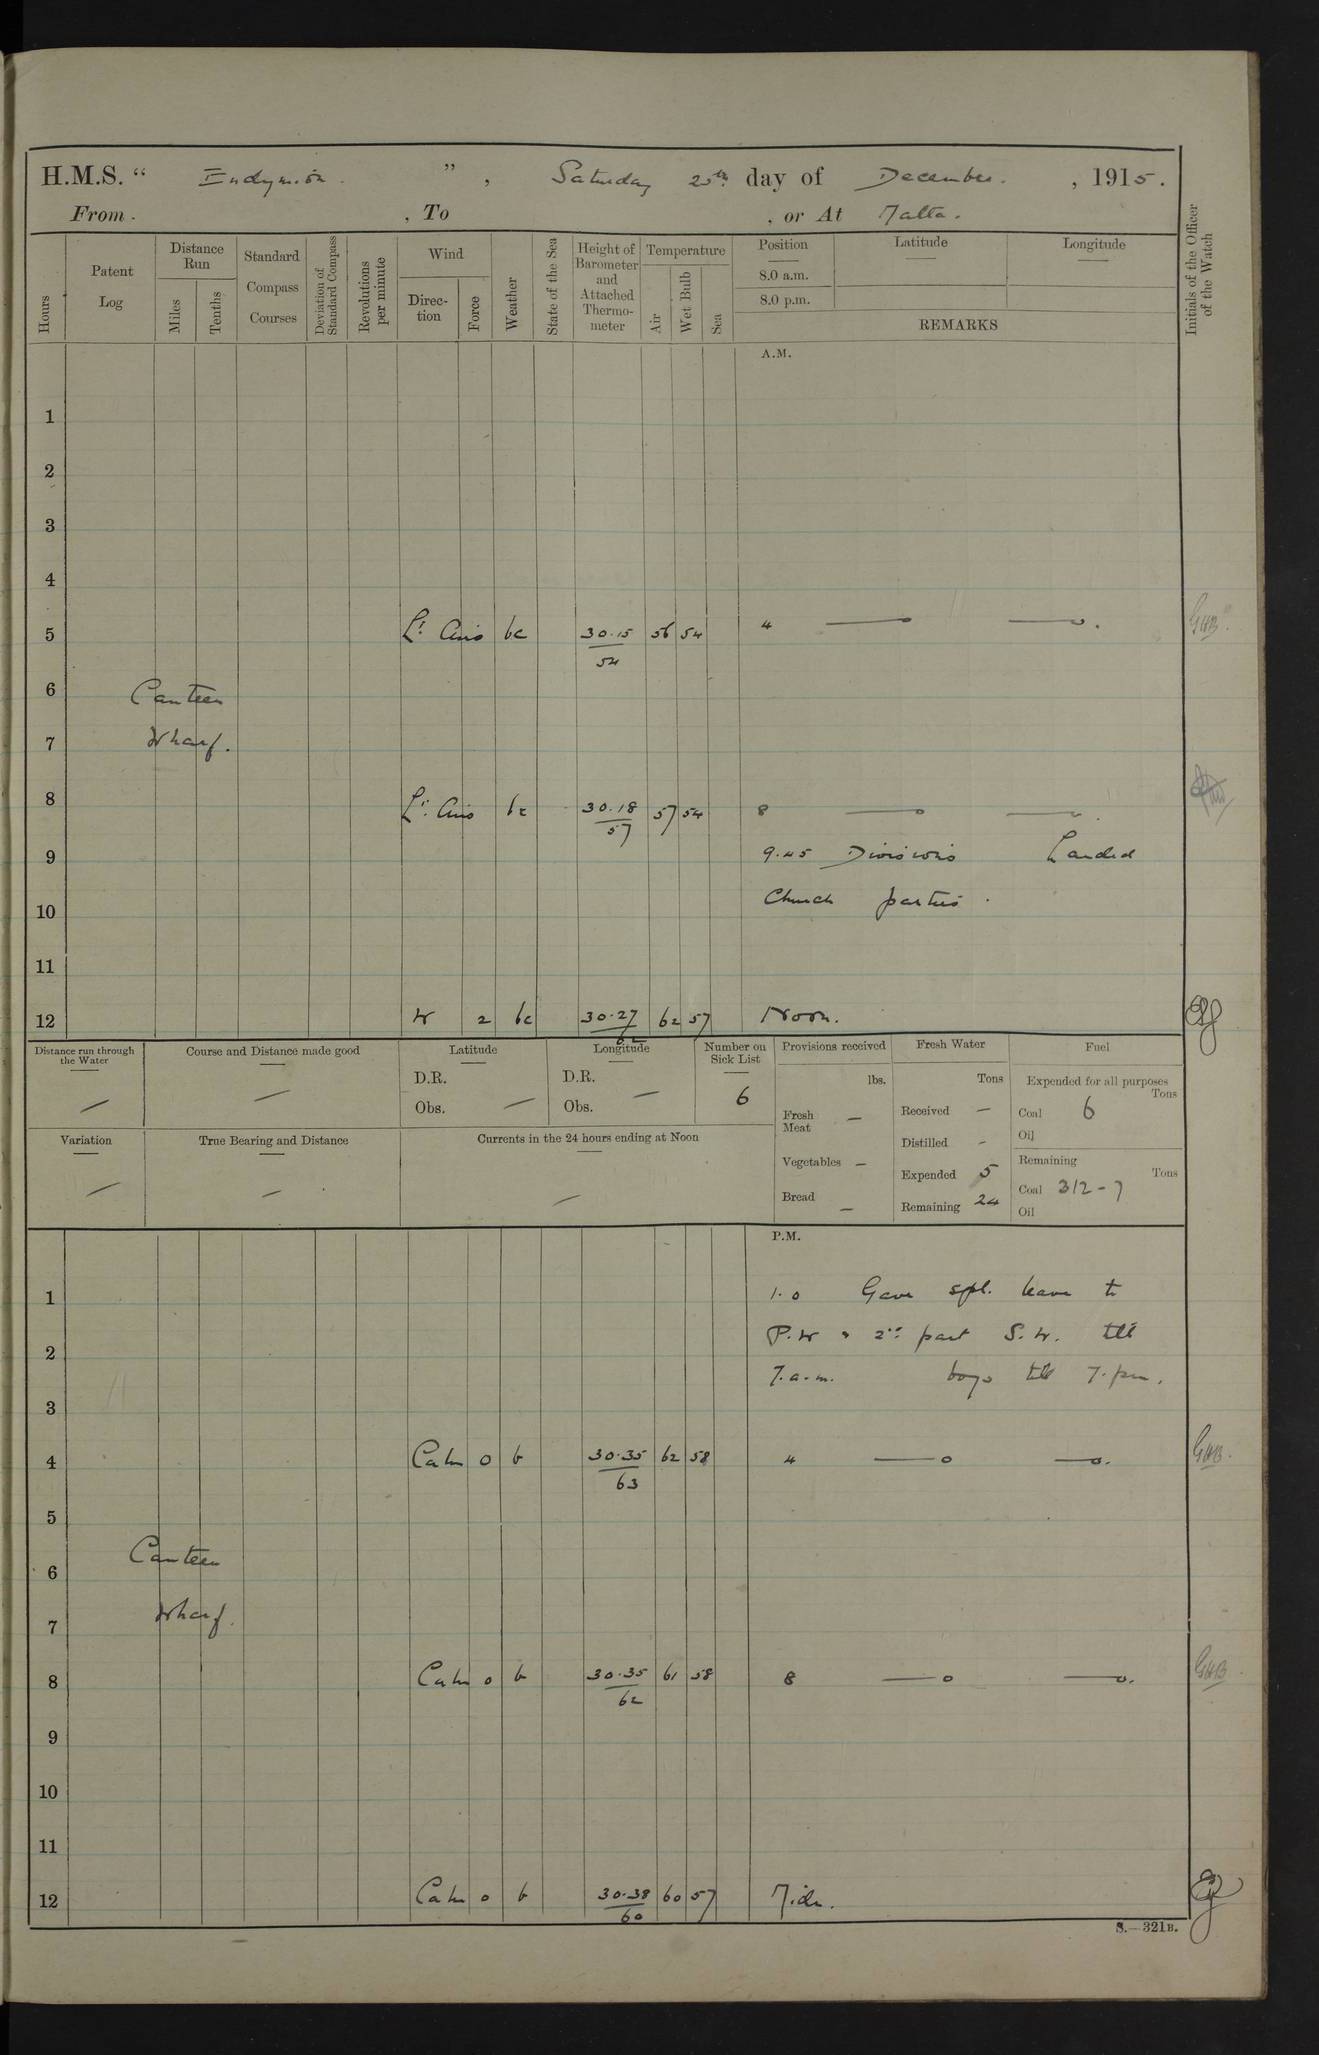 H.M.S. “ Endymion. ” , Saturday 25th day of December. , 1915.
From . , To , or At Malta.
Hours
Patent Log
Distance Run
Miles
Tenths
Standard Compass Courses
Deviation of Standard Compass
Revolutions per minute
Wind
Direc-tion
Force
Weather
State of the Sea
Height of Barometer and Attached Thermo-meter
Temperature
Air
Wet Bulb
Sea
Position Latitude Longitude
8.0 a.m.
8.0 p.m.
REMARKS
Initials of the Officer of the Watch
A.M.
1
2
3
4
5 Lt. Airs bc 30.15 56 54 4 GHB.
54
6 Canteen
7 Wharf.
8 Lt. Airs bc 30.18 57 54 8
57
9 9.45 Divisions Landed
10 Church parties.
11
12 W 2 bc 30.27 62 57 Noon.
62
Distance run through the Water
Course and Distance made good
Latitude
D.R.
Obs. —
Longitude
D.R.
Obs. —
Number on Sick List
6
Variation
True Bearing and Distance
Currents in the 24 hours ending at Noon
Provisions received
lbs.
Fresh Meat —
Vegetables —
Bread —
Fresh Water
Tons
Received —
Distilled -
Expended 5
Remaining 24
Fuel
Expended for all purposes
Tons
Coal 6
Oil
Remaining
Tons
Coal 312-7
Oil
P.M.
1 1.0 Gave spl. leave to
2 P.W & 2nd part S.W. till
7.a.m. boys till 7.pm.
3
4 Calm 0 b 30.35 62 58 4 GHB.
63
5
6 Canteen
7 Wharf.
8 Calm 0 b 30.35 61 58 8 GHB
62
9
10
11
12 Calm 0 b 30.38 60 57 Midn.
60
S.—321B.